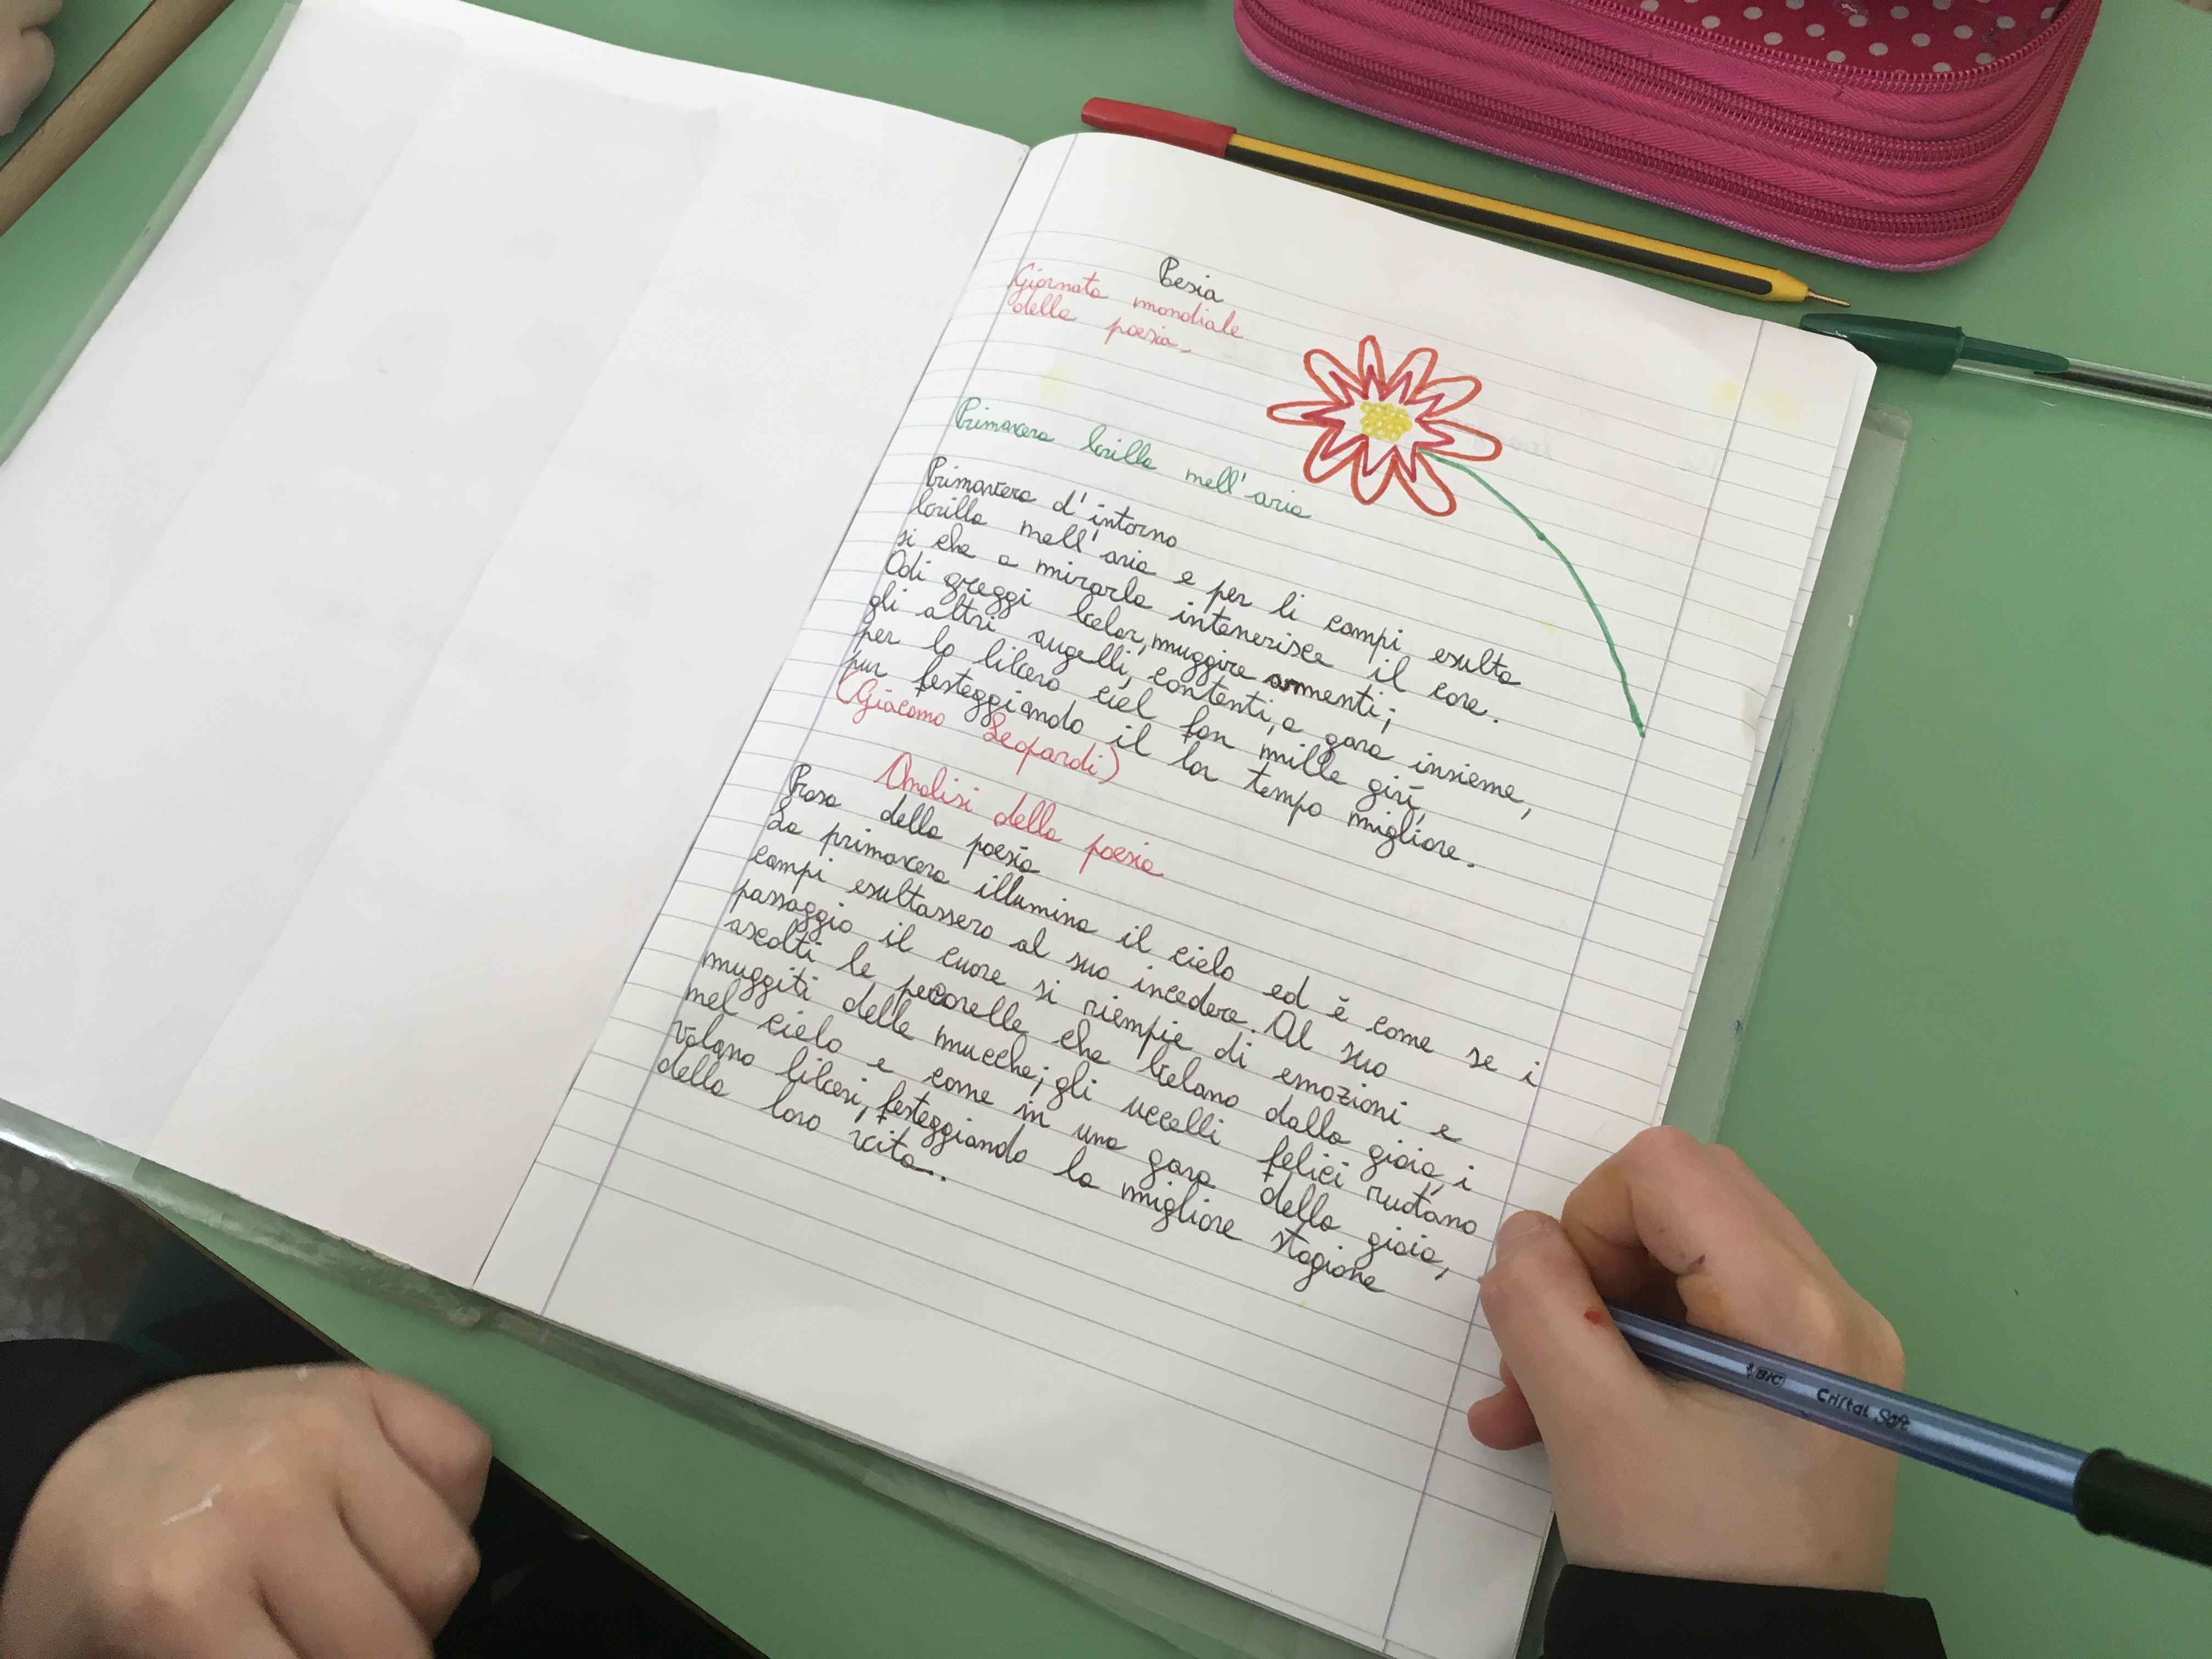 Poesia
Giornata mondiale
della poesia.
Primavera brilla nell'aria
Primavera d'intorno
brilla nell'aria e per li campi esulta
si che a mirarla intenerisce il core.
Odi greggi belar, muggire armenti;
gli altri augelli, contenti, a gara insieme,
per lo libero ciel fan mille giri,
pur festeggiando il lor tempo migliore.
(Giacomo Leopardi)
Analisi della poesia
Prosa della poesia
La primavera illumina il cielo ed è come se i
campi esultassero al suo incedere. Al suo
passaggio il cuore si riempie di emozioni e
ascolti le pecorelle che belano dalla gioia, i
muggiti delle mucche; gli uccelli felici ruotano
nel cielo e come in una gara della gioia,
volano liberi, festeggiando la migliore stagione
della loro vita.
BIC Cristal Soft